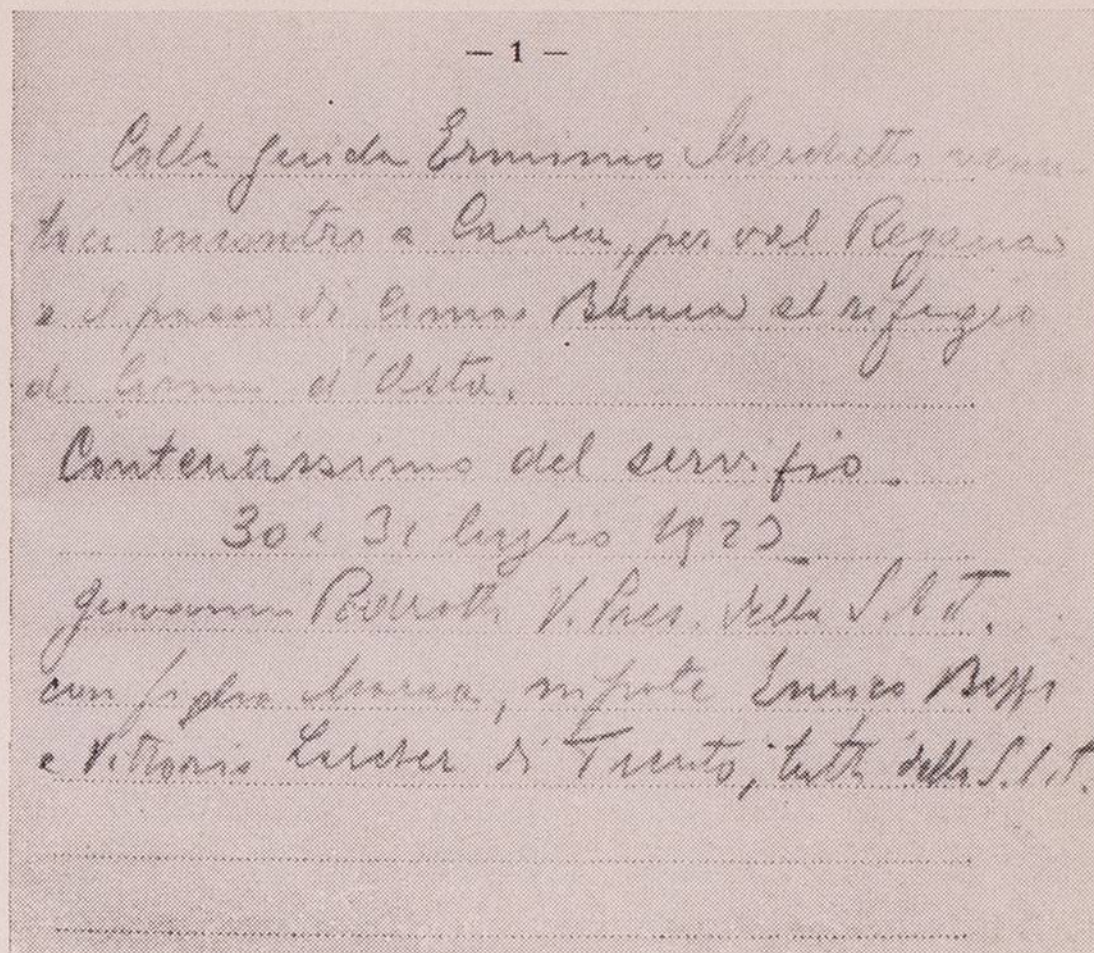 — 1 —
Colla guida Erminio Marchetto venu
toci incontro a Caoria, per val Regana
e il passo di Cima Bauca al rifugio
di Cima d'Asta.
Contentissimo del servizio
30 e 31 luglio 1922
Giovanni Pedrotti V. Pres. della S.A.T.
con figlia Maria, nipote Enrico
e Vittorio Larcher di Trento, tutti della S.A.T.